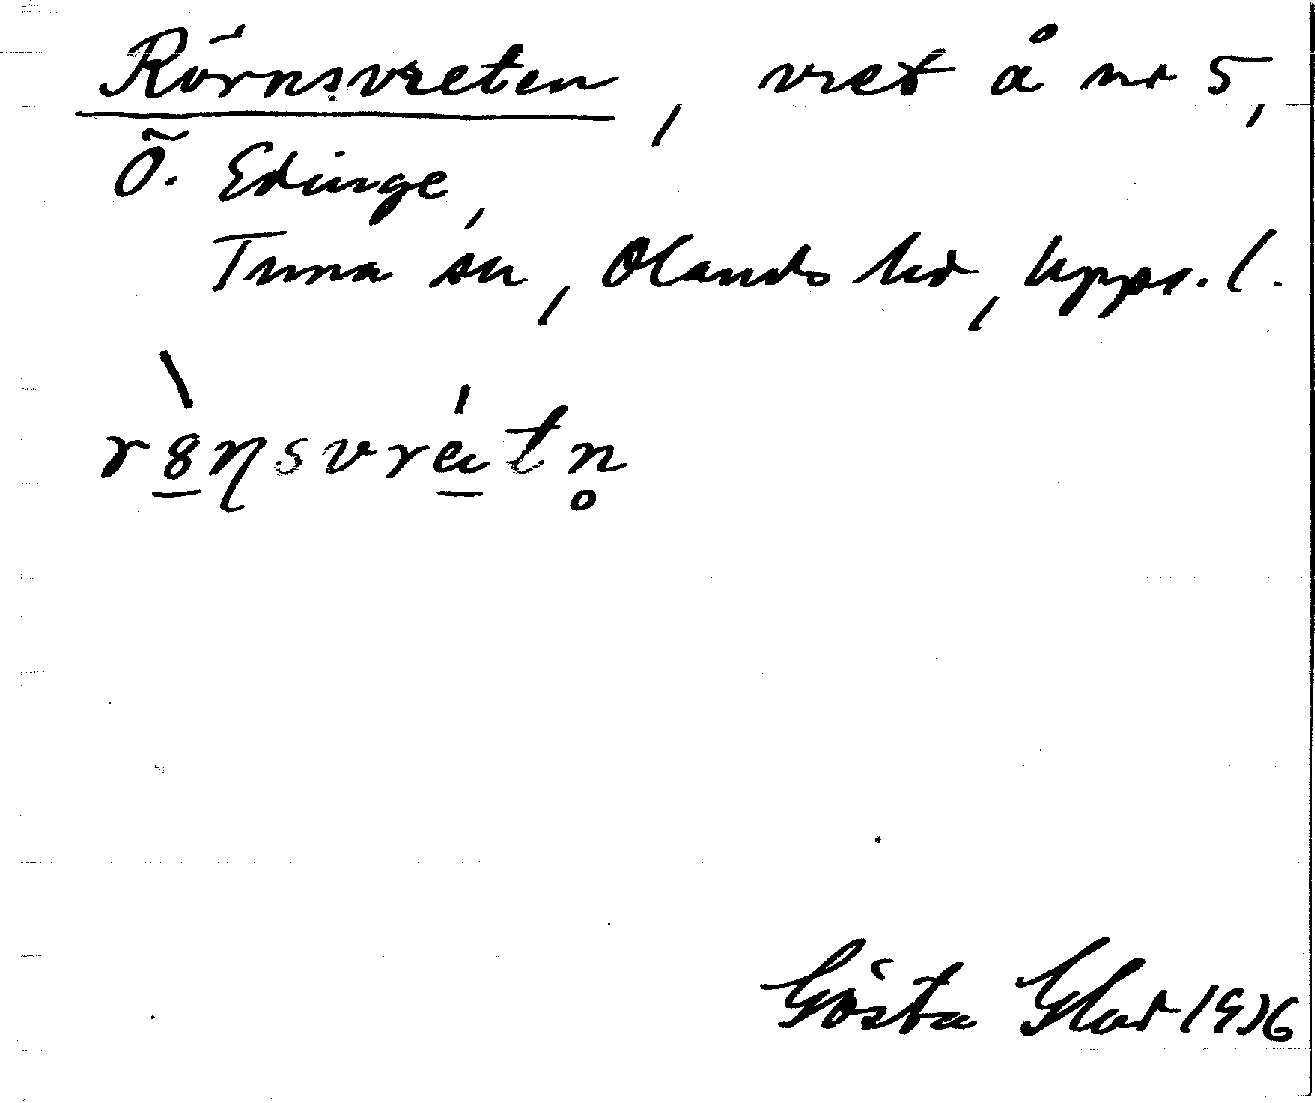 Rörnsvreten, vret å nr 5,
Ö. Edinge,
Tuna sn, Olands hd, Upps. l.
r8̲̀ɳsvré̲tn̥
Gösta Glad 1936